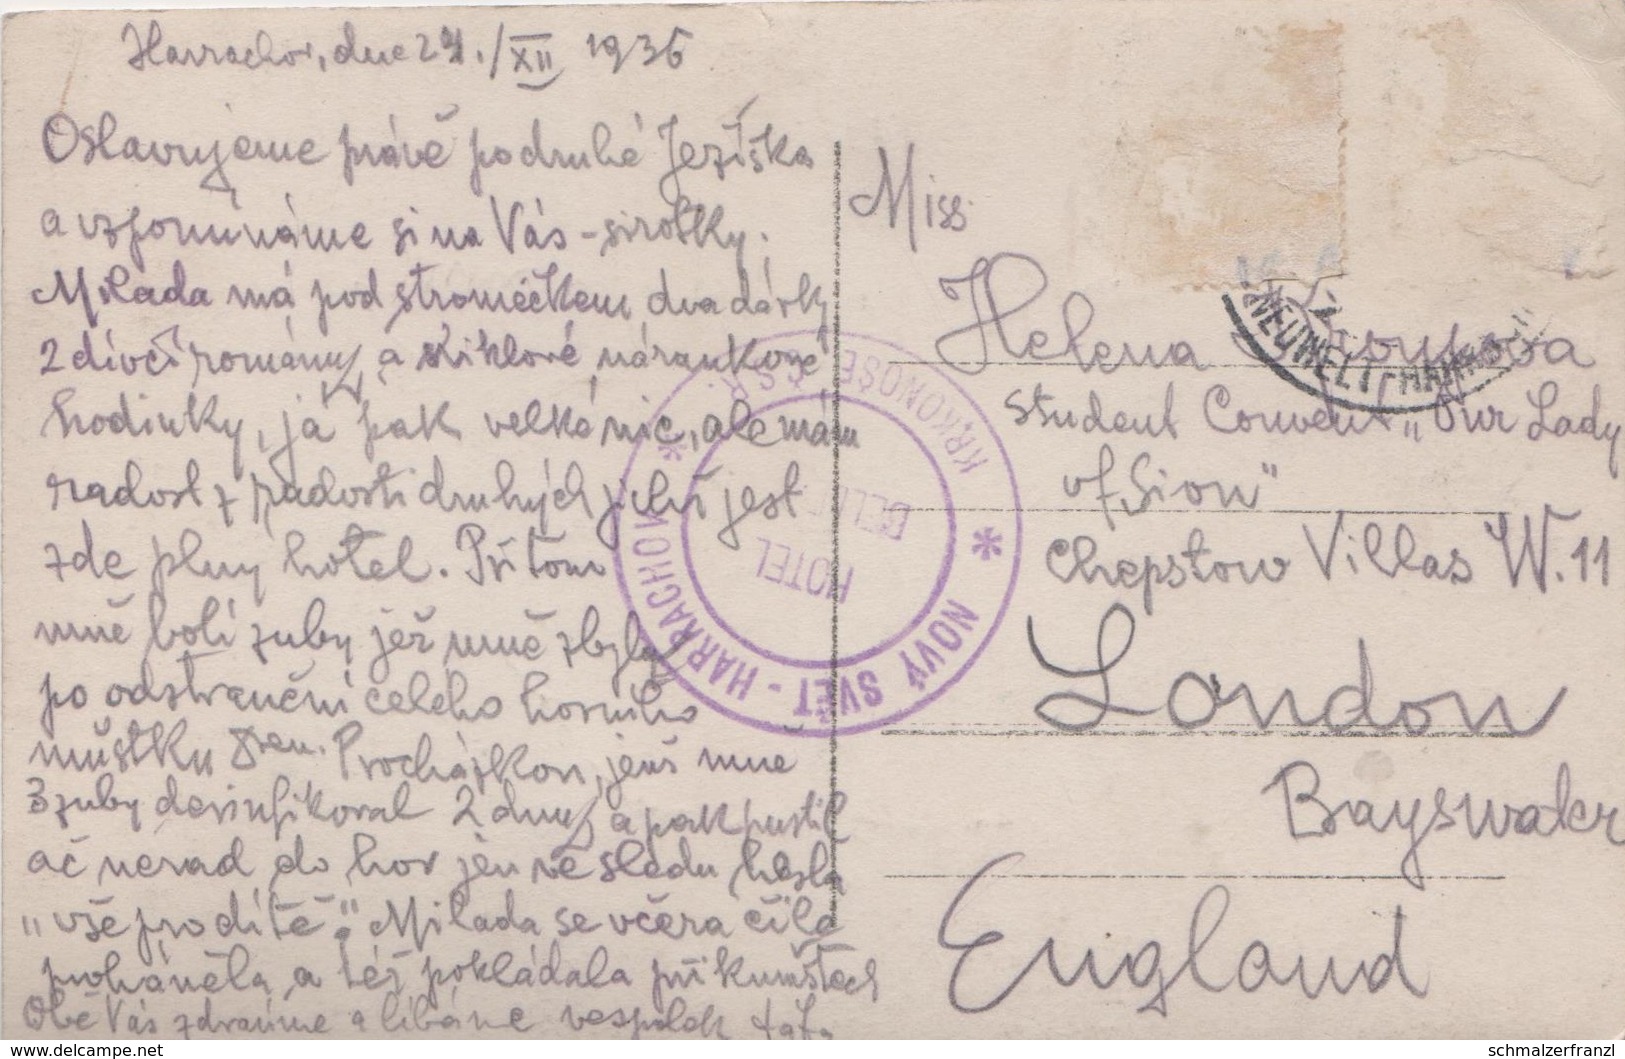 Harrachov, dne 24./XII 1936
Oslavujeme právě podruhé Ježíška
a vzpomínáme si na Vás - sirotky.
Milada má pod stromečkem dva dárky
2 dívčí romány a niklové náramkové
hodinky, já pak velké nic, ale mám
radost z radosti druhých jichž jest
zde plný hotel. Přitom
mně bolí zuby jež mně zbyly
po odstranění celého horního
můstku Drem. Procházkou, jenž mně
3 zuby desinfikoval 2 dny a pak pustil
ač nerad do hor jen ve sledu hesla
„vše pro dítě." Milada se včera čile
proháněla a též pokládala při kumštech
Obě Vás zdravíme a líbáme vespolek táta
Miss
Helena
Student Convent „Our Lady
of Sion"
Chepstow Villas W. 11
London
Bayswater
England
NEUWELT
* NOVÝ SVĚT - HARRACHOV * KRKONOŠE Č.S.R.
HOTEL
schmalzerfranzl
© www.delcampe.net